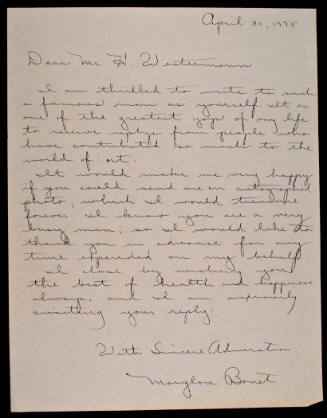 April 30, 1975
Dear Mr. H. Westermann
I am thrilled to write to such
a famous man as yourself. It is
one of the greatest joys of my life
to receive replys from people who
have contributed so much to the
world of art.
It would make me very happy
if you could send me an autographed
photo, which I would treasure
forever. I know you are a very
busy man, so I would like to
thank you in advance for any
time expended on my behalf.
I close by wishing you
the best of health and happiness
always, and I am anxiously
awaiting your reply.
With Sincere Admiration,